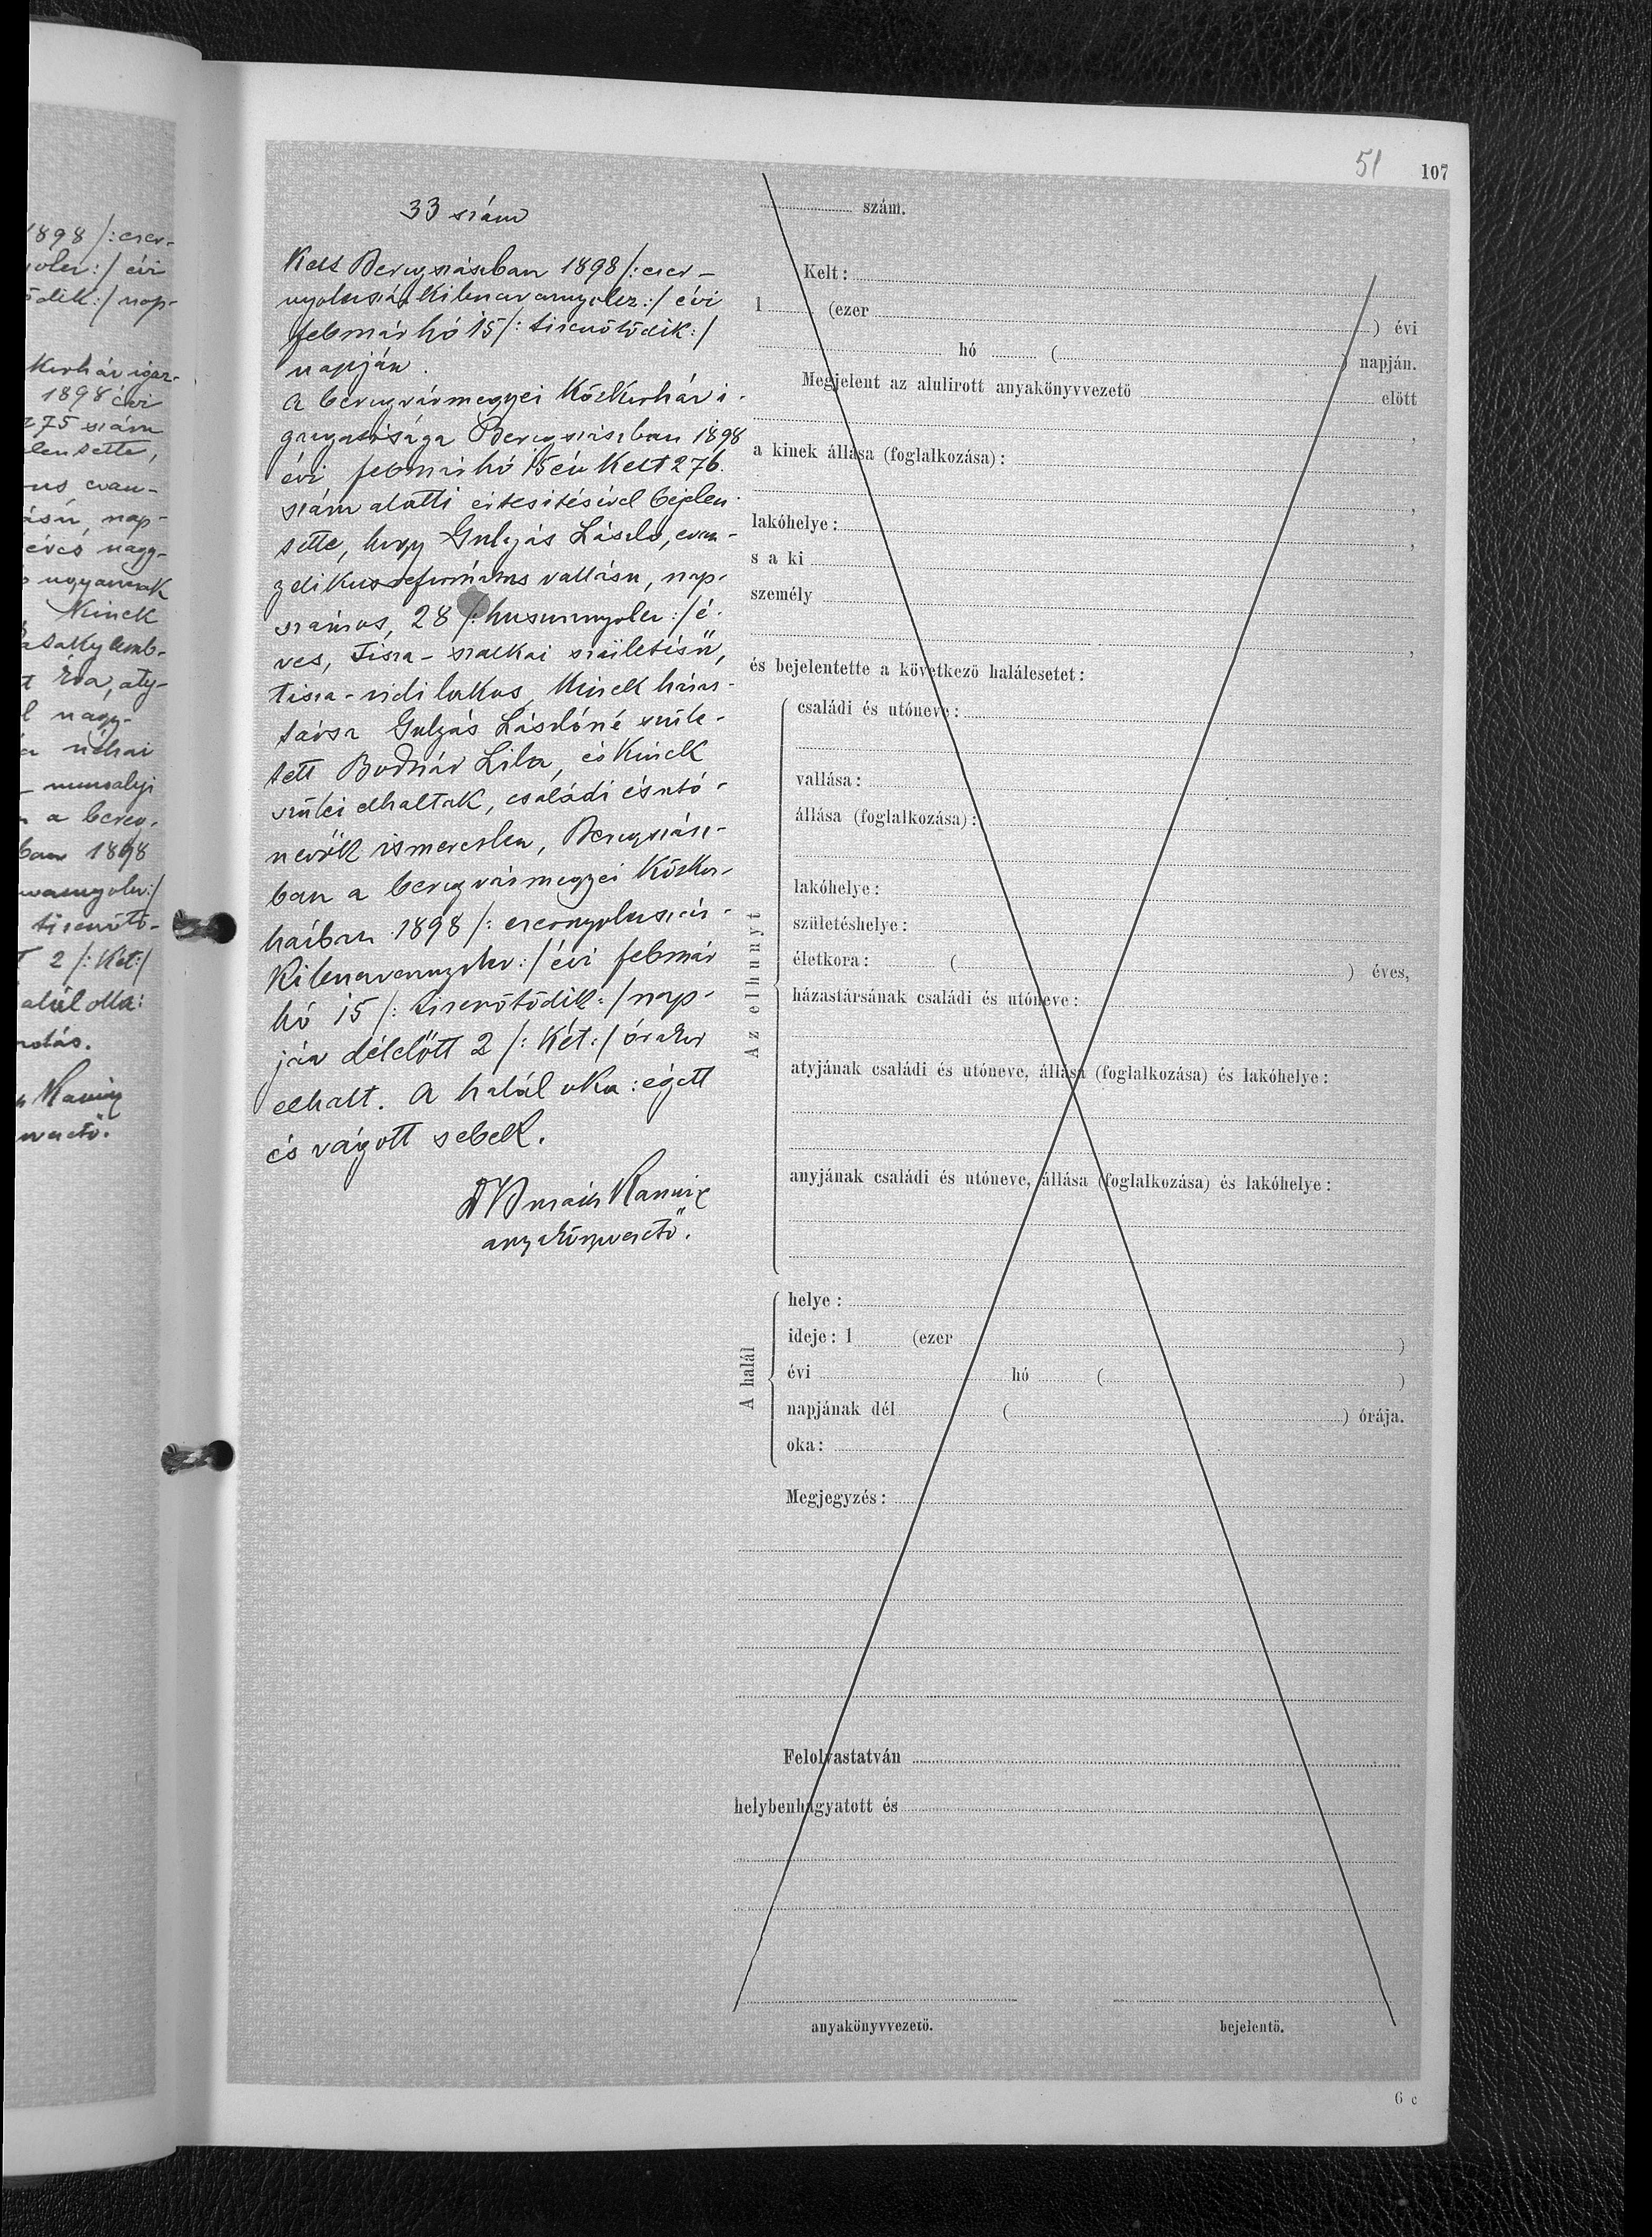 1898 /: ezer-
/ évi
ödik :/ nap-
Kórház igaz-
1898 évi
275 szám
lentette,
us evan-
ásu, nap-
éves nagy-
ugyannak
Kinek
t Éva, aty-
l nagy-
néhai
a bereg-
ban 1898
tizenötö-
2 /: Két :/
anyakönyvvezető.
51
107
33 szám
Kelt Beregszászban 1898 /: ezer-
nyolcszázkilencvennyolcz :/ évi
február hó 15 /: tizenötödik :/
napján.
A beregvármegyei Közkórház i-
gazgatósága Beregszászban 1898
évi február hó 15én Kelt 276.
szám alatti értesitésével bejelen-
tette, hogy Gulyás László, evan-
gelikus református vallásu, nap-
számos, 28 /: huszonnyolcz :/ é-
ves, Tisza-szalkai születésü,
tisza-vidi lakos, Kinek házas-
társa Gulyás Lászlóné szüle-
tett Bodnár Lila, és Kinek
szülei elhaltak, családi és utó-
nevök ismeretlen, Beregszász-
ban a beregvármegyei Közkór-
házban 1898 /: ezernyolcszáz-
Kilencvennyolcz :/ évi február
hó 15 /: tizenötödik :/ nap-
ján délelőtt 2 /: Két :/ órakor
elhalt. A halál oka : égett
és vágott sebek.
anyakönyvvezető.
szám.
Kelt :
1 (ezer ) évi
hó ( ) napján.
Megjelent az alulirott anyakönyvvezető előtt
a kinek állása (foglalkozása) : ,
lakóhelye : ,
s a ki
személy
,
és bejelentette a következő halálesetet :
Az elhunyt
családi és utóneve :
vallása :
állása (foglalkozása) :
lakóhelye :
születéshelye :
életkora : ( ) éves,
házastársának családi és utóneve :
atyjának családi és utóneve, állása (foglalkozása) és lakóhelye :
anyjának családi és utóneve, állása (foglalkozása) és lakóhelye :
A halál
helye :
ideje : 1 (ezer )
évi hó ( )
napjának dél ( ) órája.
oka :
Megjegyzés :
Felolvastatván
helybenhagyatott és
anyakönyvvezető. bejelentő.
6 c